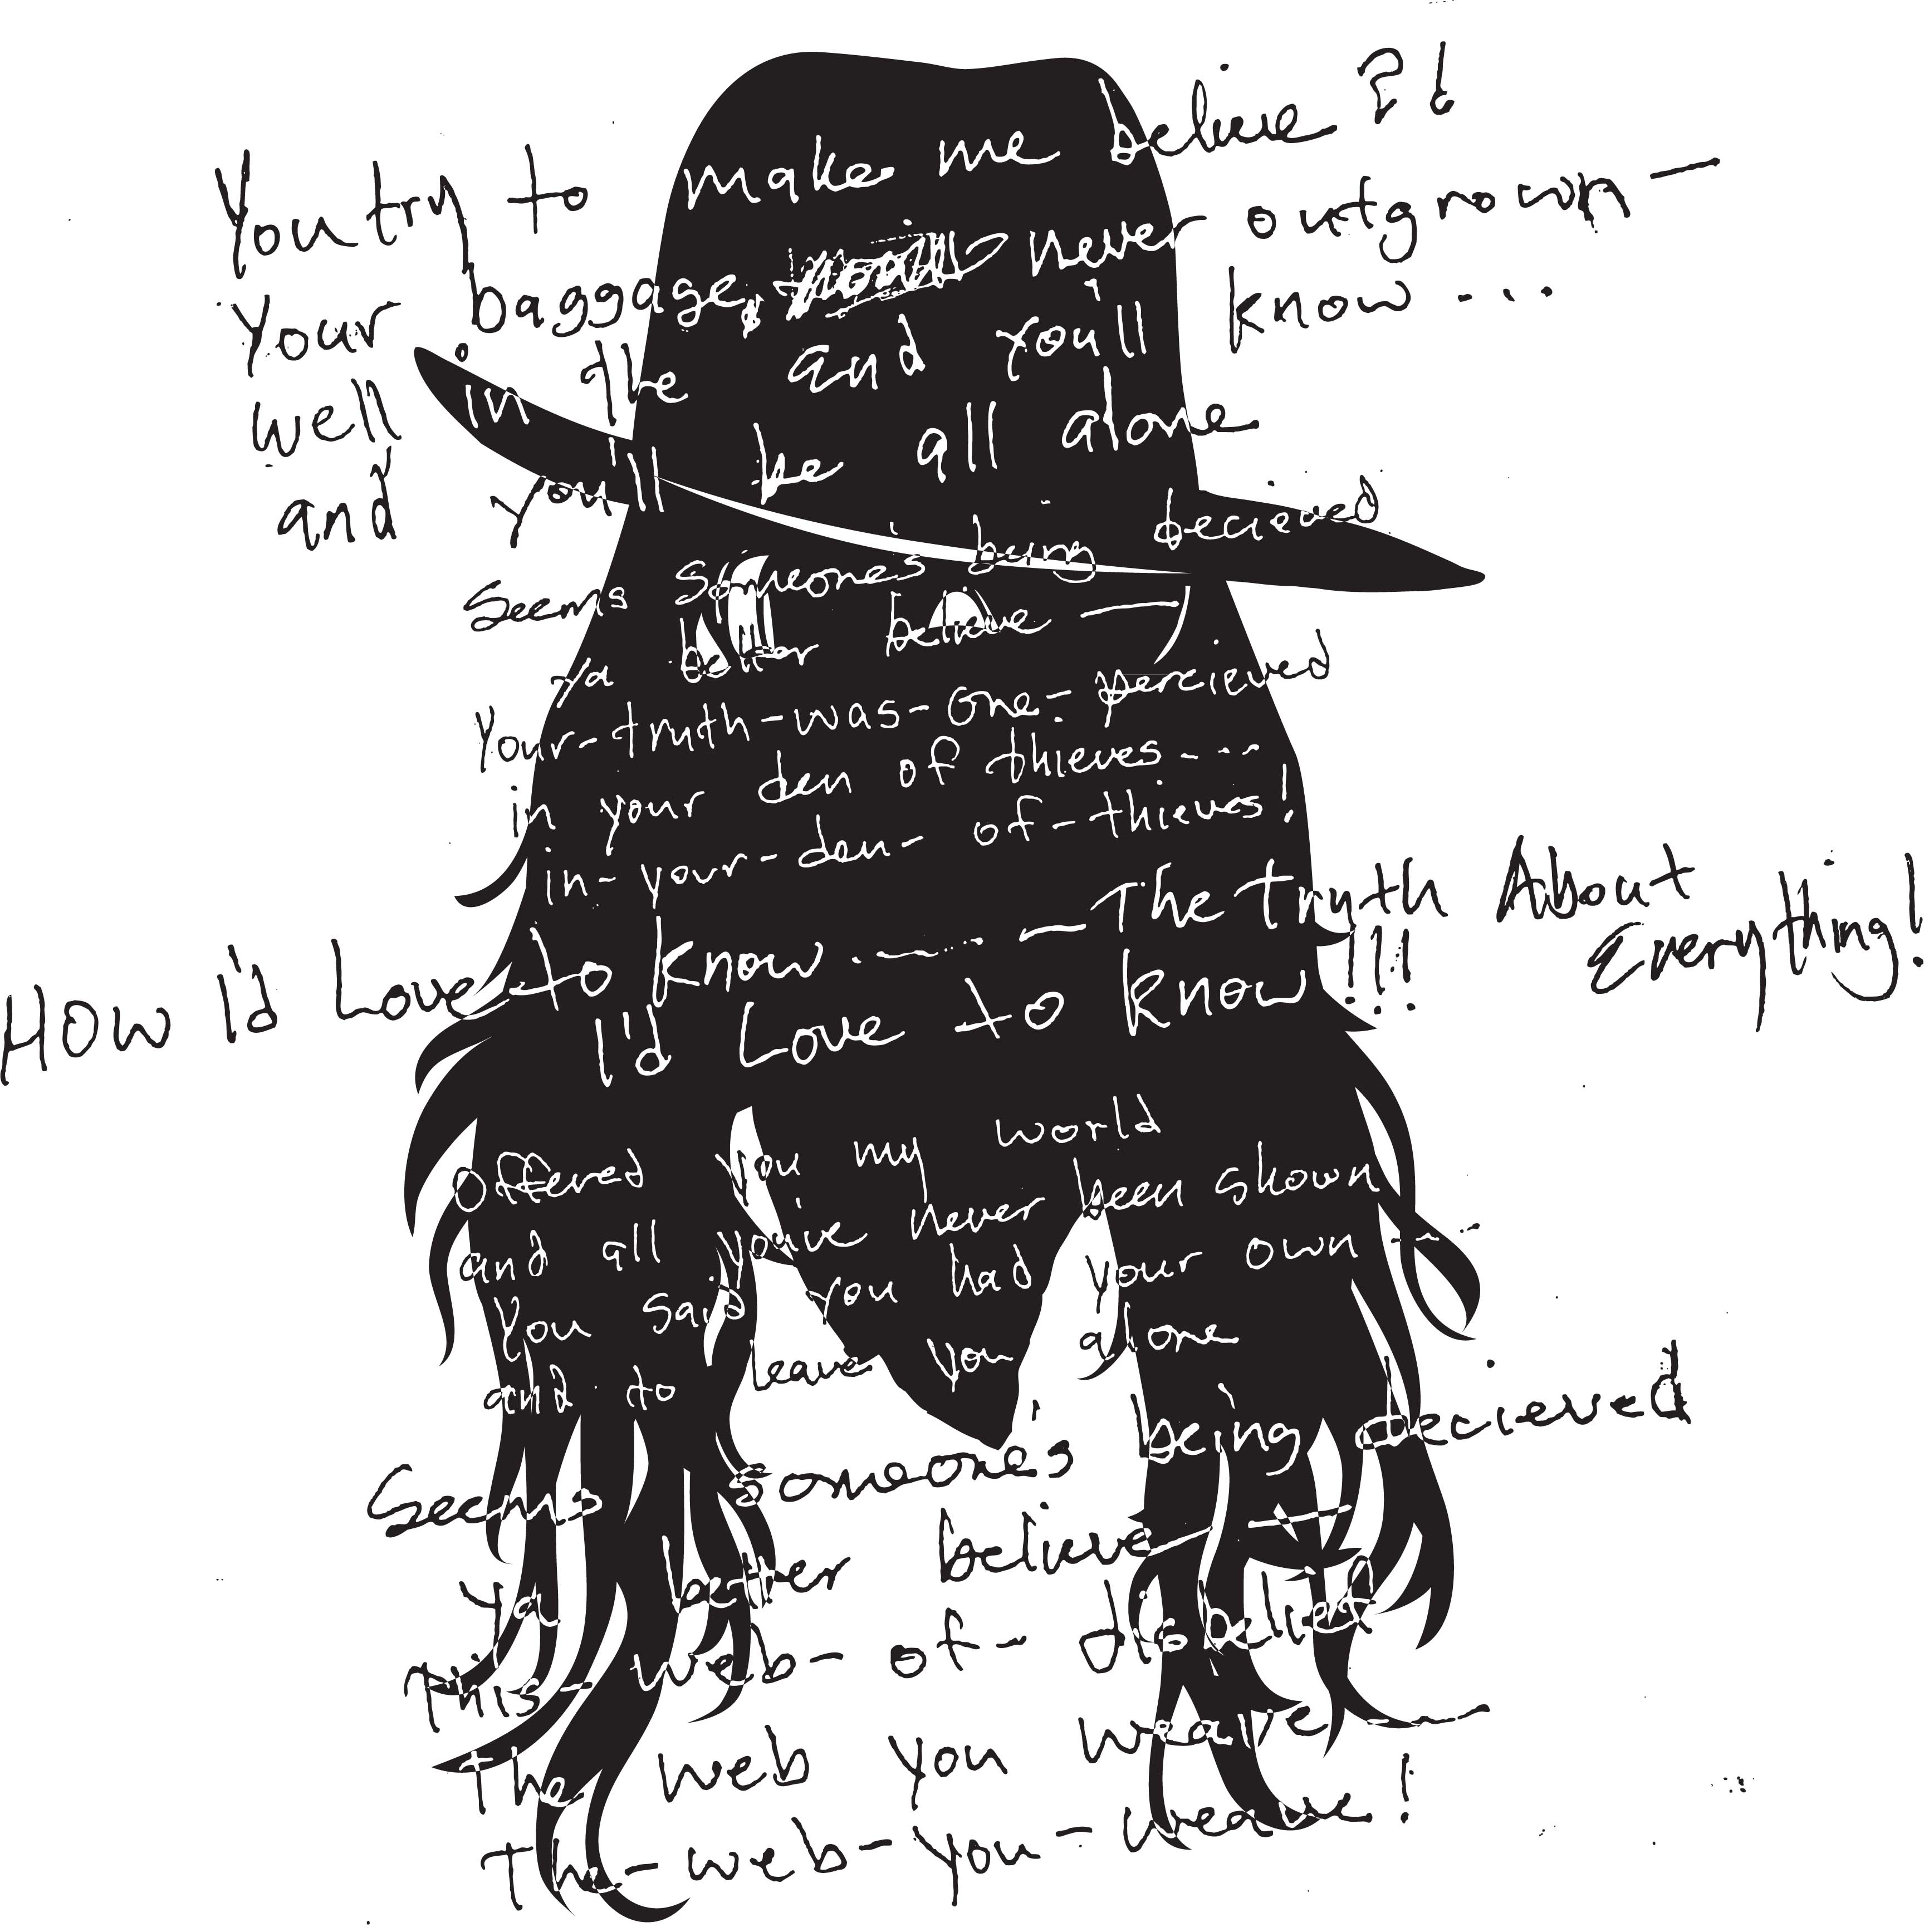 You try to make me belive ?!
Your baggage have outgrown —
well in the end you'll know ...
and you'll be all alone
Seems someones been decieved
ya better belive —
Your-truth-was-one-percieved
in your den of thieves - - -
in-your-den-of-thieves!
How I'd Love to know — The truth About Everything!
I'd Love to know!!!
Offered you my world
and all you've never been shown
you said you had your own ...
and to leave you alone
Seems someones being decieved
Ya better belive —
This web-of-
The web you weave —
The-web-you-weave!